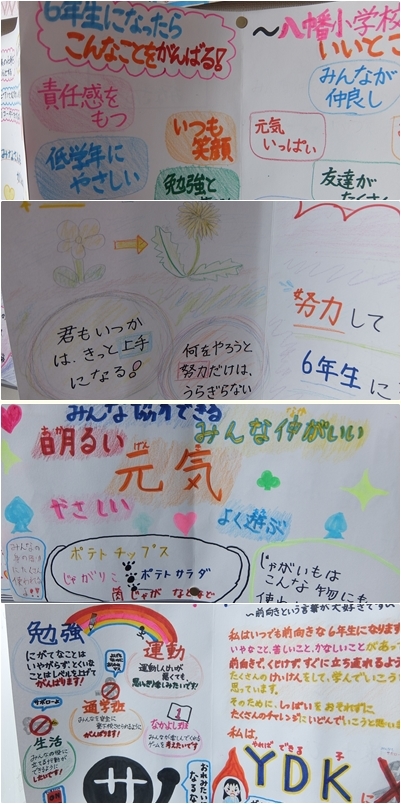 6年生になったら
こんなことをがんばる!
責任感を
もつ
いつも
笑顔
低学年に
やさしい
勉強と
～八幡小学校
いいとこ
みんなが
仲良し
元気
いっぱい
友達が
君もいつか
は、きっと上手
になる!
何をやろうと
努力だけは、
うらぎらない
努力して
6年生に
みんな協力できる
明るい
みんな仲がいい
元気
げん
やさしい
よく遊ぶ
ポテトチップス
じゃがりこ
ポテトサラダ
肉じゃが などなど
じゃがいもは
こんな物にも
勉強
にがてなことは
いやがらず、とくいな
ことはレベルを上げて
がんばります!
運動
運動しんけいが
悪くても、
思いっきり楽しみたいです!
通学班
みんなを安全に
登校させられるように
がんばります!
サボローよ
生活
みんなの役に
立てる行動が
できるように
したいです!
なかよし班
みんなが楽しんでくれる
ゲームを考えたいです
サ
～前向きという言葉が大好きです～
私はいつも前向きな6年生になります
いやなこと、苦しいこと、かなしいことがあって
前向きで、くじけず、すぐに立ち直れるよう
たくさんのけいけんをして、学んでいこう
思っています。
そのために、しっぱいをおそれずに
たくさんのチャレンジにいどんでいこうと思いま
私は、
やれば できる 子
YDK